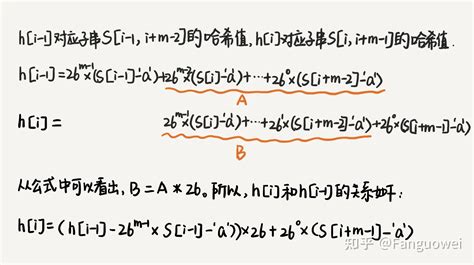 h[i-1]对应子串S[i-1, i+m-2]的哈希值, h[i]对应子串S[i, i+m-1]的哈希值.
h[i-1]=26^{m-1}×(S[i-1]-'a')+26^{m-2}×(S[i]-'a')+…+26^0×(S[i+m-2]-'a')
A
h[i]= 26^{m-1}×(S[i]-'a')+…+26^1×(S[i+m-2]-'a')+26^0×(S[i+m-1]-'a')
B
从公式中可以看出, B=A*26. 所以, h[i]和h[i-1]的关系如下:
h[i]=(h[i-1]-26^{m-1}×S[i-1]-'a'))×26+26^0×(S[i+m-1]-'a')
知乎 @Fanguowei